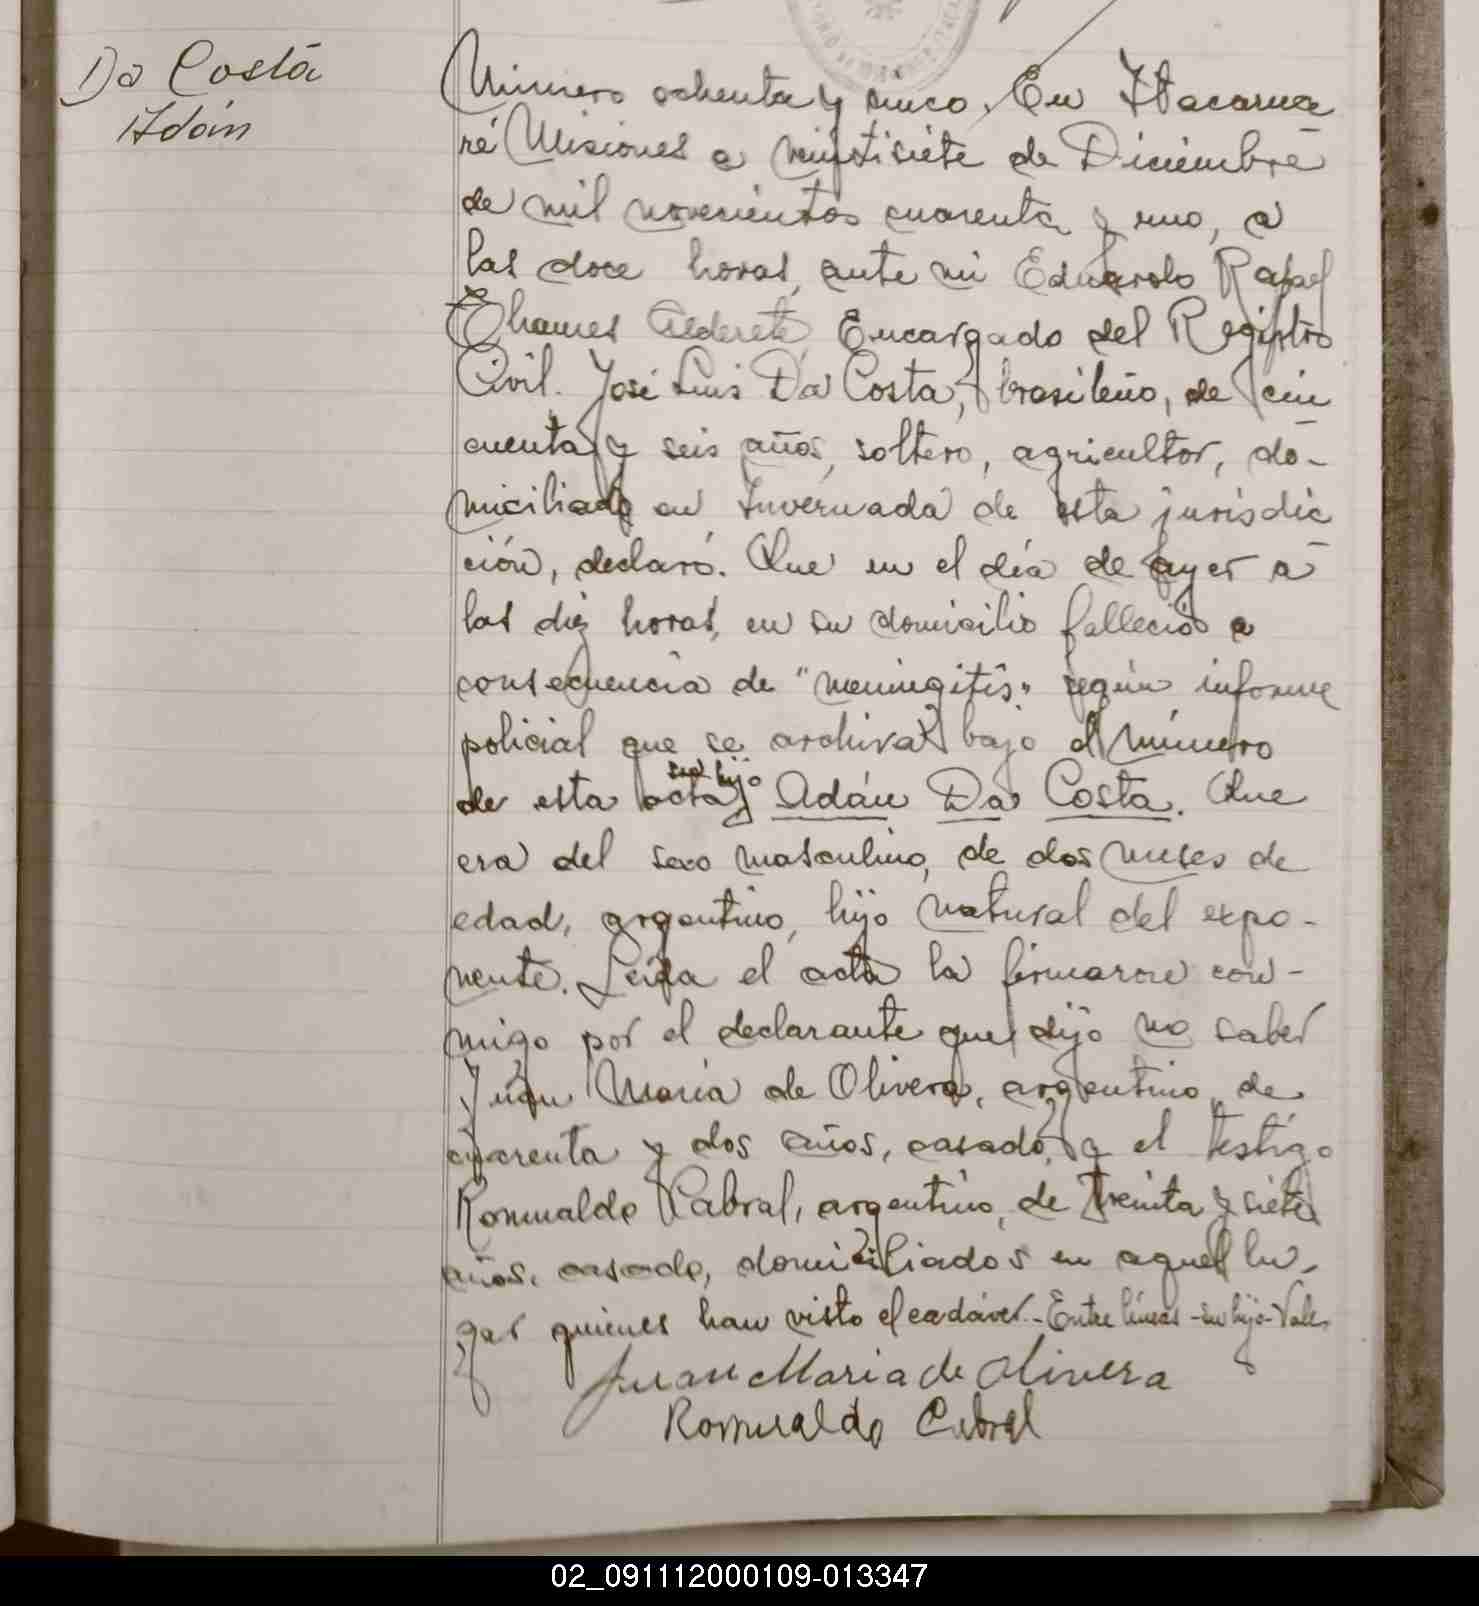 Da Costa
Adán
Número ochenta y cinco. En Itacarua
ré Misiones a veintisiete de Diciembre
de mil novecientos cuarenta y uno, a
las doce horas, ante mi Eduardo Rafael
Thames Alderete Encargado del Registro
Civil. José Luis Da Costa, brasileño, de cin
cuenta y seis años, soltero, agricultor, do-
miciliado en Invernada de esta jurisdic
ción, declaró. Que en el día de ayer a
las diez horas, en su domicilio falleció a
consecuencia de "meningitis" según informe
policial que se archiva bajo el número
su hijo
de esta acta, Adán Da Costa. Que
era del sexo masculino, de dos meses de
edad, argentino, hijo natural del expo-
nente. Leída el acta la firmaron con-
migo por el declarante que dijo no saber
Juan María de Olivera, argentino, de
cuarenta y dos años, casado, y el testigo
Romualdo Cabral, argentino, de treinta y siete
años, casado, domiciliados en aquel lu-
gar quienes han visto el cadáver.-Entre líneas-su hijo-Vale.
Juan Maria de Olivera
Romualdo Cabral
02_091112000109-013347